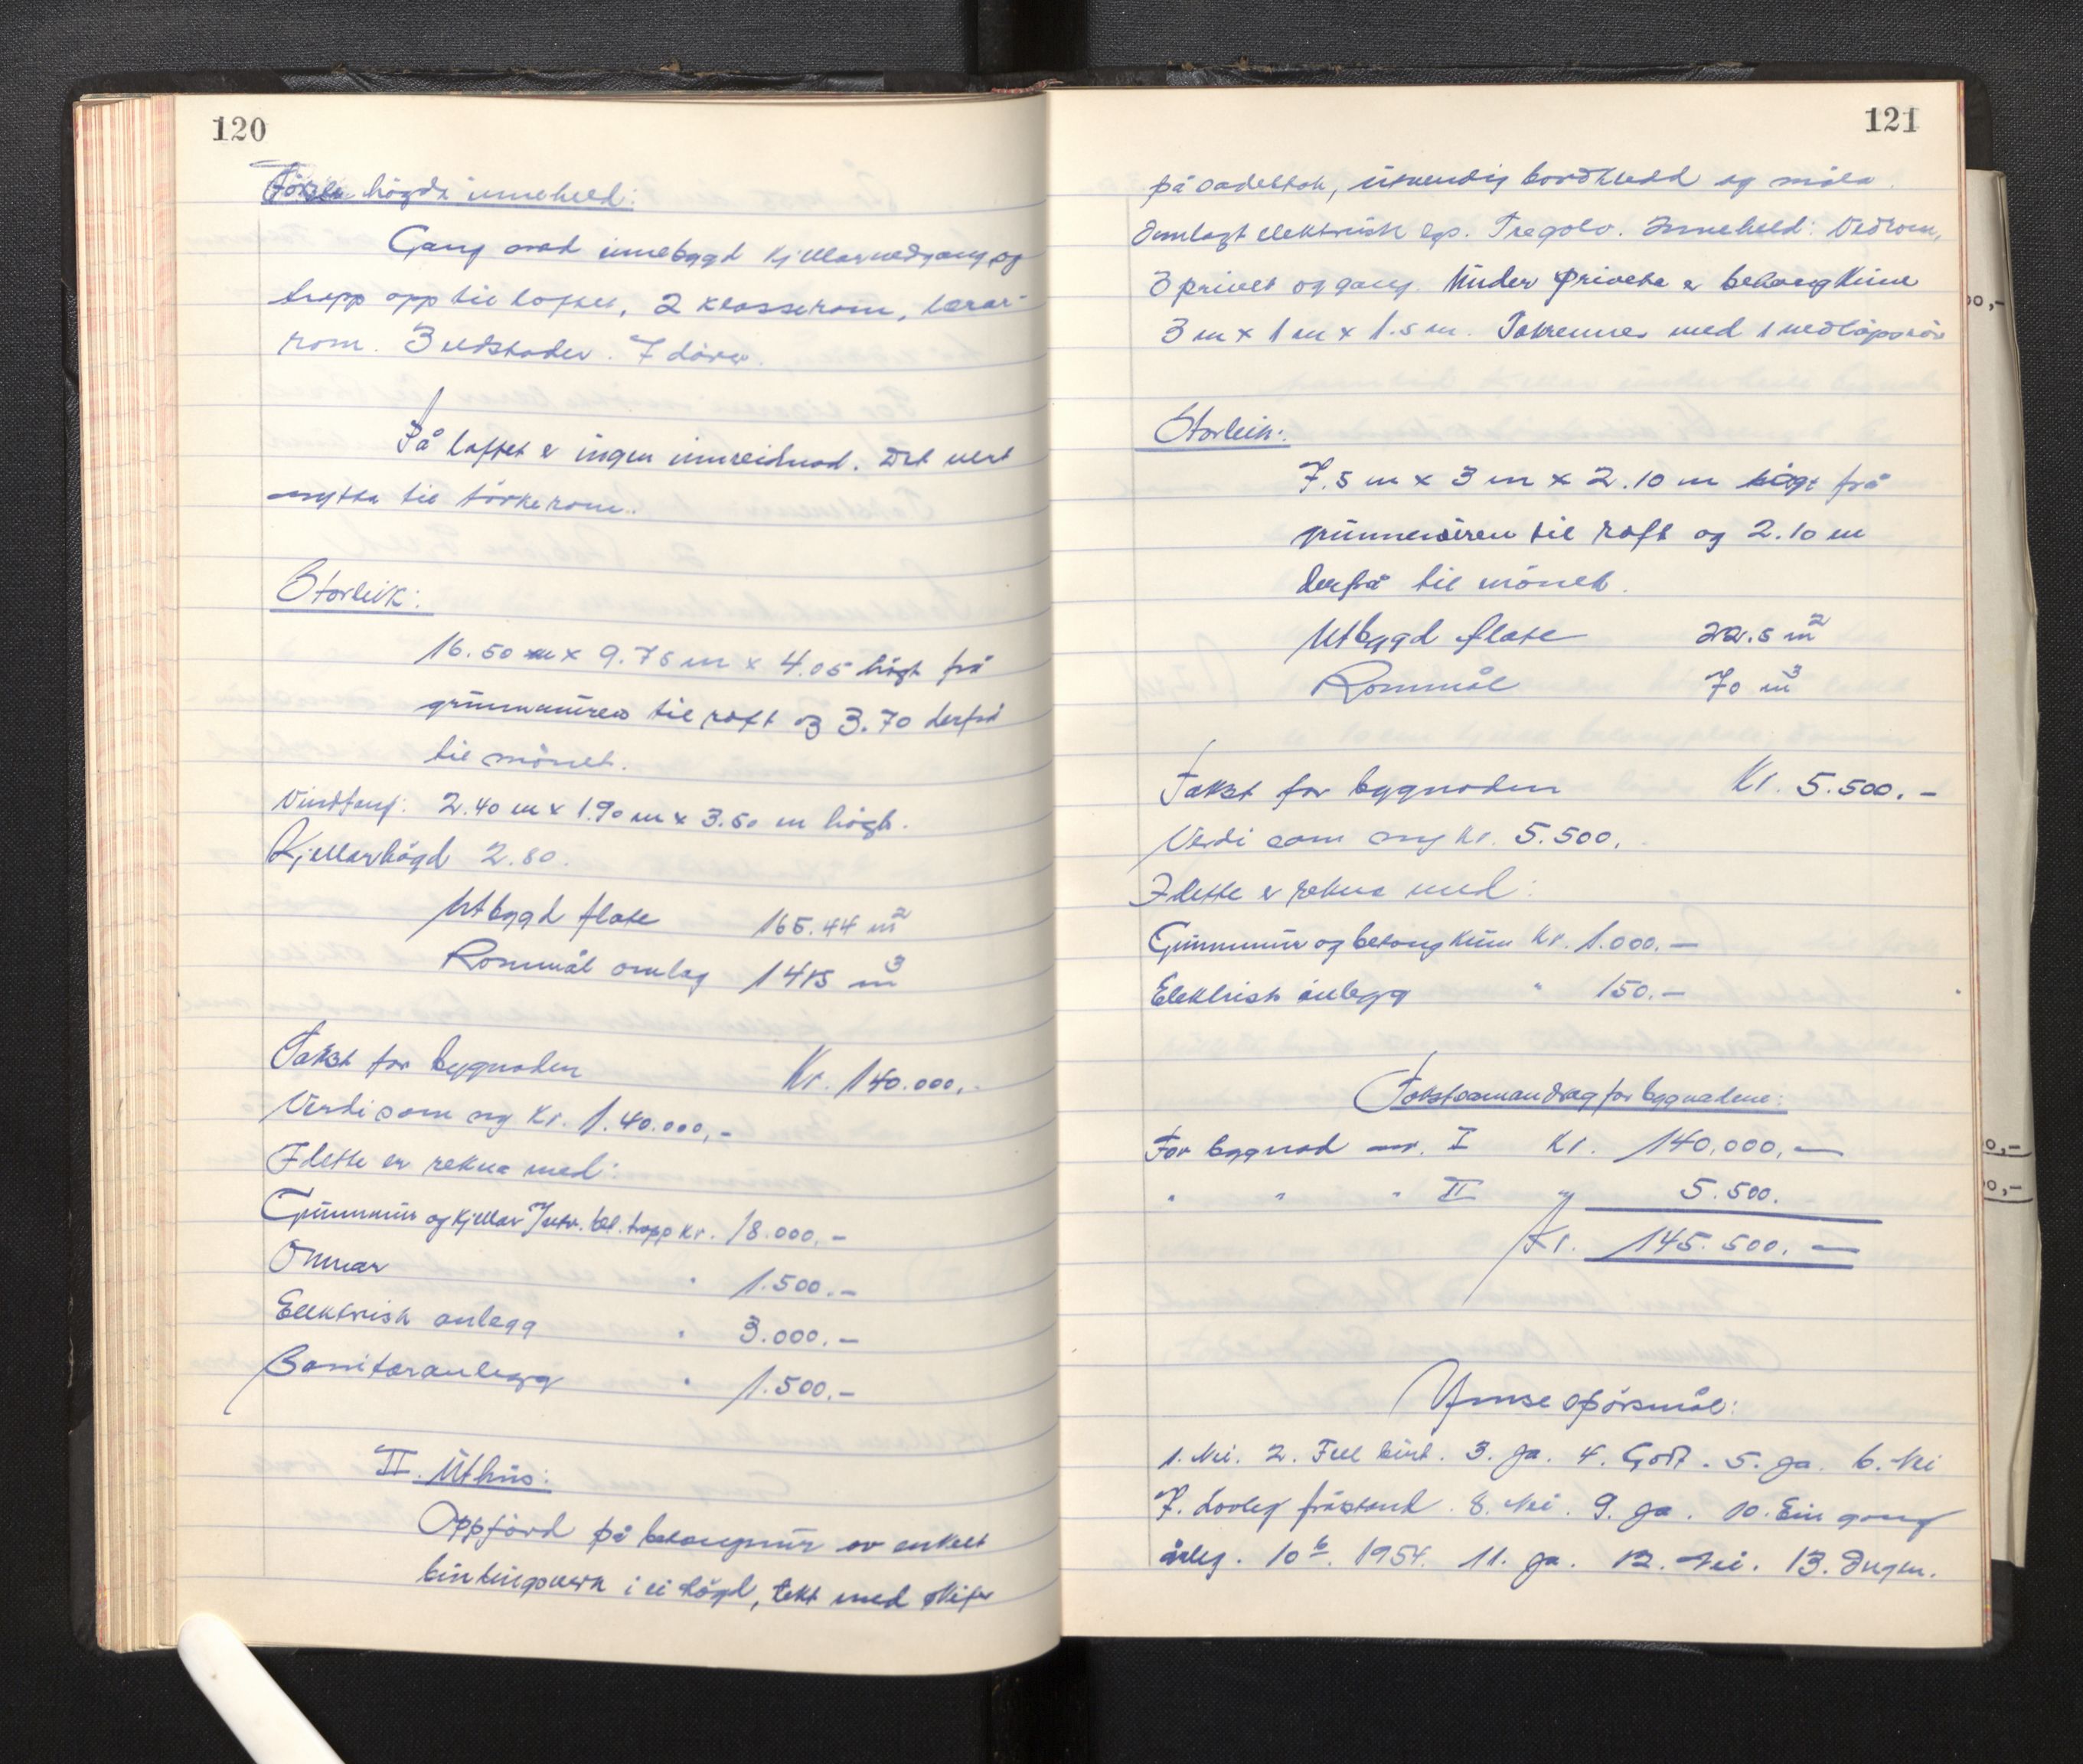 120
högda inneheld:
Gang med innebygd kjellarnedgang og
trapp opp til loftet, 2 klasserom, lærar-
rom. 3 eldstader. 7 dörer.
På loftet er ingen innreidnad. Det vert
nytta til törkerom.
Storleik:
16.50 m x 9.75 m x 4.05 högt frå
grunnmuren til raft og 3.70 derfrå
til mönet.
Vindfang: 2.40 m x 1.90 m x 3.50 m högt.
Kjellarhögd 2.80.
Utbygd flate 165.44 m²
Rommål omlag 1415 m³
Takst for bygnaden Kr. 140.000,-
Verdi som ny kr. 1.40.000,-
I dette er rekna med:
Grunnmur og kjellar m/utv. bet. trapp kr. 18.000.-
Omnar " 1.500.-
Elektrisk anlegg " 3.000.-
Sanitæranlegg " 1.500.-
II. Uthus:
Oppförd på betongmur av enkelt
bindingsverk i ei högd, tekt med skifer
121
på sadeltak, utvendig bordkledd og måla.
Innlagt elektrisk lys. Tregolv. Inneheld: Vedrom,
3 privet og gang. Under priveta er betongkum
3 m x 1 m x 1.5 m. Takrenner med 1 nedlöpsrör
Storleik:
7.5 m x 3 m x 2.10 m högt frå
grunnmuren til raft og 2.10 m
derfrå til mönet.
Utbygd flate 22.5 m²
Rommål 70 m³
Takst for bygnaden Kr. 5.500.-
Verdi som ny kr. 5.500.
I dette er rekna med:
Grunnmur og betongkum kr. 1.000.-
Elektrisk anlegg " 150.-
Takstsamandrag for bygnadene:
For bygnad nr. I Kr. 140.000.-
" " " II " 5.500.
Kr. 145.500.-
Ymse spörsmål:
1. Nei. 2. Full bart. 3. Ja. 4. Godt. 5. Ja. 6. Nei
7. Lovleg fråstand. 8. Nei. 9. Ja. 10. Ein gong
årleg. 10 b. 1954. 11. Ja. 12. Nei. 13. Ingen.
00,-
0,-
00,-